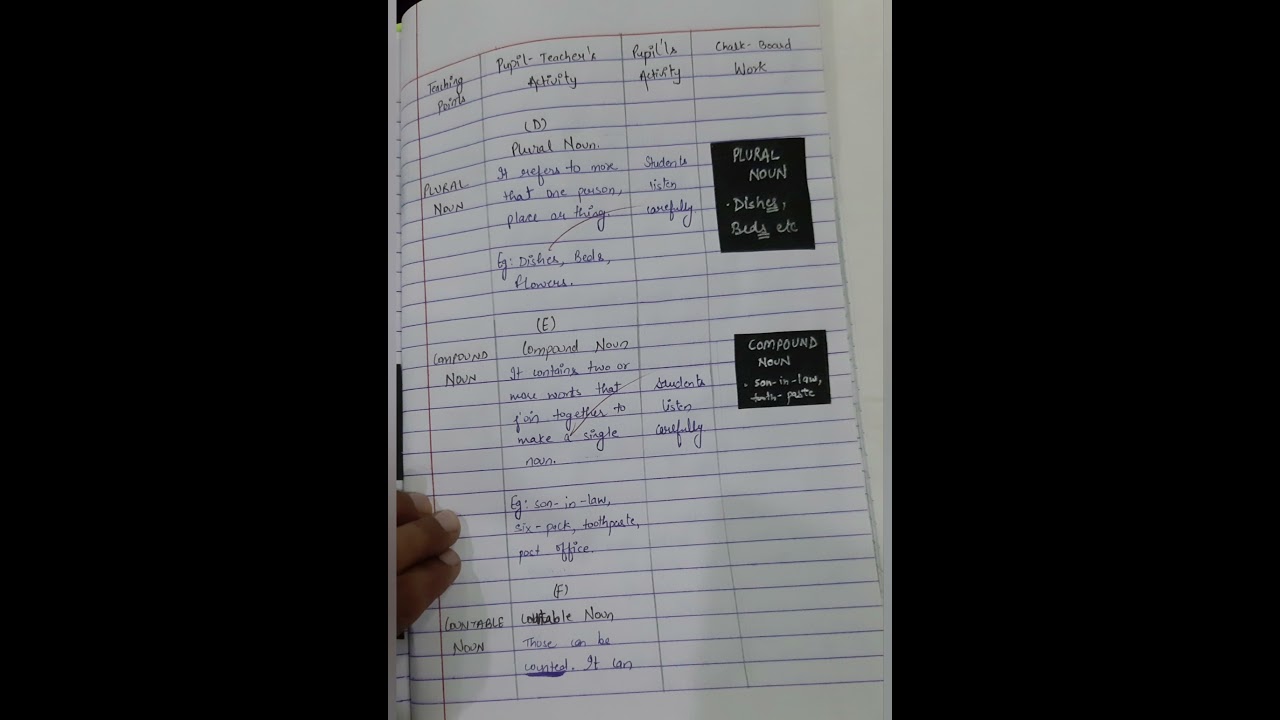 Teaching Points
Pupil-Teacher's Activity
Pupil's Activity
Chalk-Board Work
(D)
PLURAL NOUN
Plural Noun.
It refers to more
that one person,
place or thing.
Eg: Dishes, Beds,
flowers.
Students
listen
carefully
PLURAL
NOUN
·Dishes,
Beds etc
(E)
COMPOUND NOUN
Compound Noun
It contains two or
more words that
join together to
make a single
noun.
Eg: son-in-law,
six-pack, toothpaste,
post office.
Students
listen
carefully
COMPOUND
NOUN
· son-in-law,
tooth-paste
(F)
COUNTABLE NOUN
Countable Noun
Those can be
counted. It can